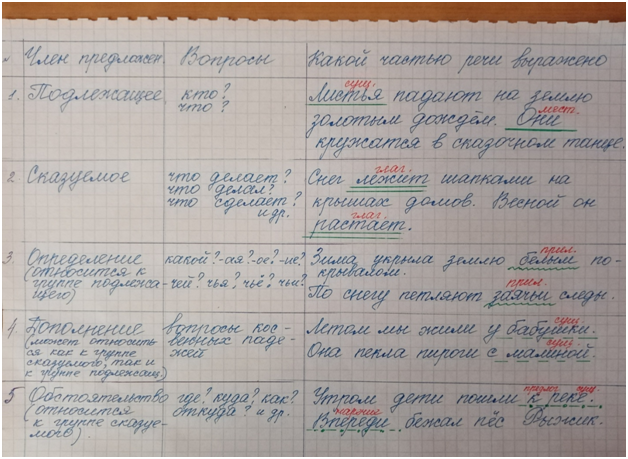 Член предложен. Вопросы Какой частью речи выражено
1. Подлежащее кто? что?
сущ.
Листья падают на землю
мест.
золотым дождём. Они
кружатся в сказочном танце.
2 Сказуемое что делает? что делал? что сделает? и др.
глаг.
Снег лежит шапками на
крышах домов. Весной он
глаг.
растает.
3. Определение (относится к группе подлежащего)
какой? -ая? -ое? -ие?
чей? чья? чьё? чьи?
прил.
Зима укрыла землю белым по-
крывалом.
прил.
По снегу петляют заячьи следы.
4. Дополнение
(может относить
ся как к группе
сказуемого, так и
к группе подлежащ)
вопросы кос-
венных паде-
жей
сущ.
Летом мы жили у бабушки.
сущ.
Она пекла пироги с малиной.
5 Обстоятельство
(относится
к группе сказуе-
мого)
где? куда? как?
откуда? и др.
предлог сущ.
Утром дети пошли к реке.
наречие
Впереди бежал пёс Рыжик.